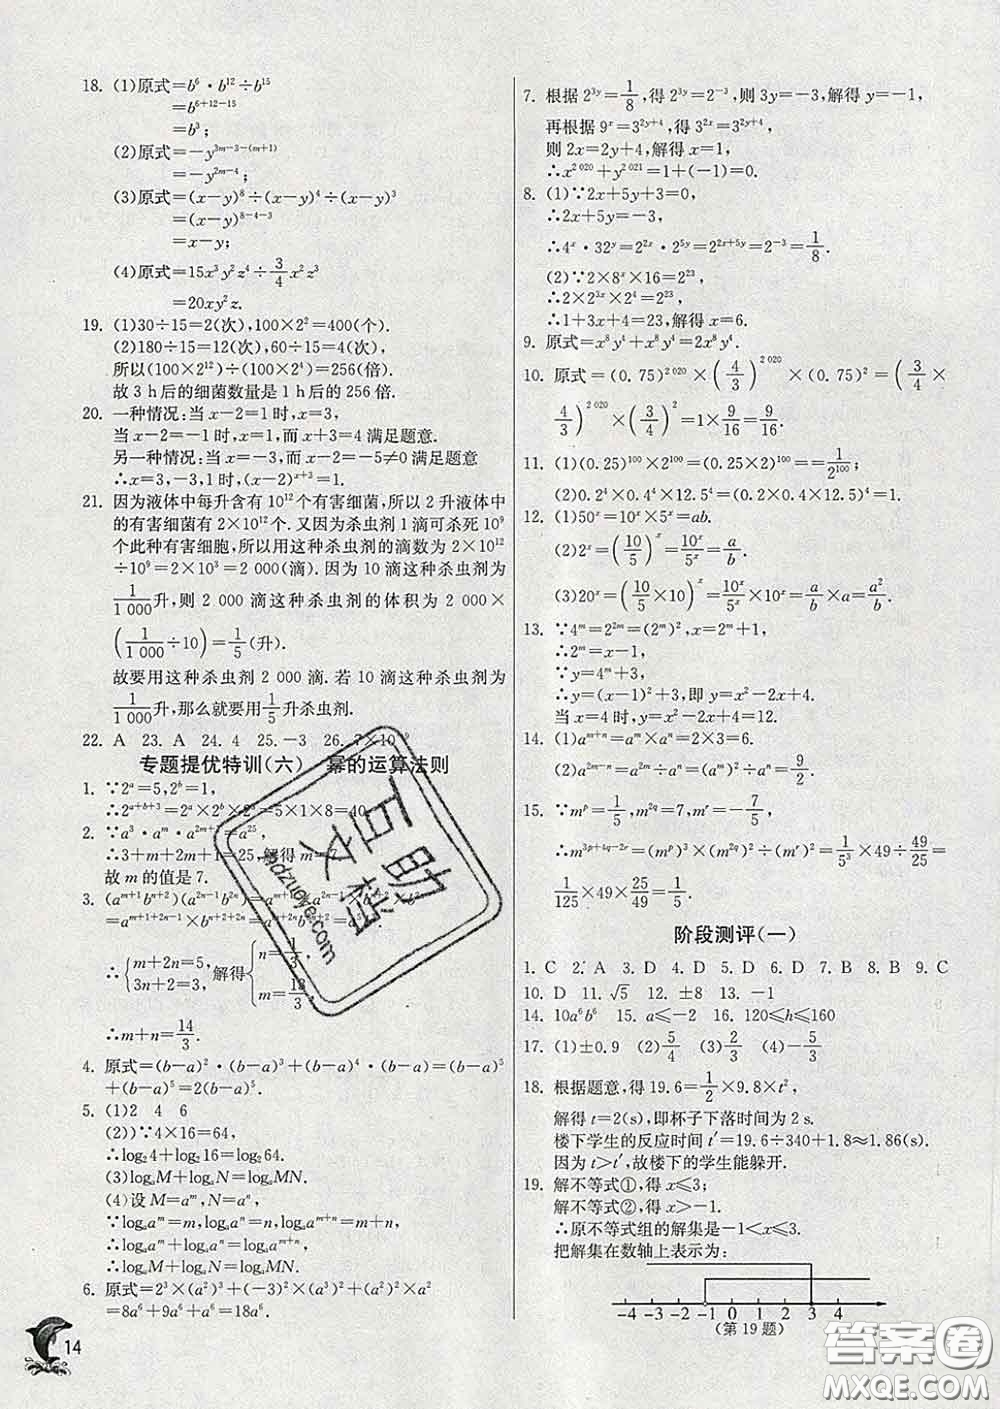 18. (1)原式=b⁶·b¹²÷b¹⁵
=b⁶⁺¹²⁻¹⁵
=b³;
(2)原式=−y³ᵐ⁻³⁻⁽ᵐ⁺¹⁾
=−y²ᵐ⁻⁴;
(3)原式=(x−y)⁸÷(x−y)⁴÷(x−y)³
=(x−y)⁸⁻⁴⁻³
=x−y;
(4)原式=15x³y²z⁴÷3/4x²z³
=20xy²z.
19. (1)30÷15=2(次),100×2²=400(个).
(2)180÷15=12(次),60÷15=4(次),
所以(100×2¹²)÷(100×2⁴)=256(倍).
故 3 h后的细菌数量是 1 h后的 256 倍.
20. 一种情况:当 x−2=1 时,x=3,
当 x−2=−1 时,x=1,而 x+3=4 满足题意.
另一种情况:当 x=−3,而 x−2=−5≠0满足题意
∴x=−3,3,1 时,(x−2)ˣ⁺³=1.
21. 因为液体中每升含有 10¹² 个有害细菌,所以 2 升液体中
的有害细菌有 2×10¹² 个.又因为杀虫剂 1 滴可杀死 10⁹
个此种有害细胞,所以用这种杀虫剂的滴数为 2×10¹²
÷10⁹=2×10³=2 000(滴).因为 10 滴这种杀虫剂为
1/1 000升,则 2 000 滴这种杀虫剂的体积为 2 000×
(1/1 000÷10)=1/5(升).
故要用这种杀虫剂 2 000 滴.若 10 滴这种杀虫剂为
1/1 000升,那么就要用1/5升杀虫剂.
22. A 23. A 24. 4 25. −3 26. 7×10⁻⁹
专题提优特训(六) 幂的运算法则
1. ∵2ᵃ=5,2ᵇ=1,
∴2ᵃ⁺ᵇ⁺³=2ᵃ×2ᵇ×2³=5×1×8=40.
2. ∵a³·aᵐ·a²ᵐ⁺¹=a²⁵,
∴3+m+2m+1=25,解得 m=7.
故 m 的值是 7.
3. (aᵐ⁺¹bⁿ⁺²)(a²ⁿ⁻¹b²ⁿ)=aᵐ⁺¹
=aᵐ⁺¹⁺²ⁿ⁻¹×bⁿ⁺²⁺²ⁿ=
∴{m+2n=5, 3n+2=3, 解得{n=1/3, m=13/3.
∴m+n=14/3.
4. 原式=(b−a)²·(b−a)³+(b−a)⁴·(b−a)−(b−a)⁵
+(b−a)⁵=2(b−a)⁵.
5. (1)2 4 6
(2))∵4×16=64,
∴log₂4+log₂16=log₂64.
(3)logₐM+logₐN=logₐMN.
(4)设 M=aᵐ,N=aⁿ,
∵logₐaᵐ=m,logₐaⁿ=n,logₐaᵐ⁺ⁿ=m+n,
∴logₐaᵐ+logₐaⁿ=logₐaᵐ⁺ⁿ,
∴logₐM+logₐN=logₐMN.
6. 原式=2³×(a²)³+(−3)²×(a³)²+(a²)²×a²
=8a⁶+9a⁶+a⁶=18a⁶.
14
7. 根据 2³ʸ=1/8,得 2³ʸ=2⁻³,则 3y=−3,解得 y=−1,
再根据 9ˣ=3²ʸ⁺⁴,得 3²ˣ=3²ʸ⁺⁴,
则 2x=2y+4,解得 x=1,
∴x²⁰²⁰+y²⁰²¹=1+(−1)=0.
8. (1)∵2x+5y+3=0,
∴2x+5y=−3,
∴4ˣ·32ʸ=2²ˣ·2⁵ʸ=2²ˣ⁺⁵ʸ=2⁻³=1/8.
(2)∵2×8ˣ×16=2²³,
∴2×2³ˣ×2⁴=2²³,
∴1+3x+4=23,解得 x=6.
9. 原式=x⁸y⁴+x⁸y⁴=2x⁸y⁴.
10. 原式=(0.75)²⁰²⁰×(4/3)²⁰²⁰×(0.75)²=(3/4×
4/3)²⁰²⁰×(3/4)²=1×9/16=9/16.
11. (1)(0.25)¹⁰⁰×2¹⁰⁰=(0.25×2)¹⁰⁰==1/2¹⁰⁰;
(2)0.2⁴×0.4⁴×12.5⁴=(0.2×0.4×12.5)⁴=1.
12. (1)50ˣ=10ˣ×5ˣ=ab.
(2)2ˣ=(10/5)ˣ=10ˣ/5ˣ=a/b.
(3)20ˣ=(10/5×10)ˣ=10ˣ/5ˣ×10ˣ=a/b×a=a²/b.
13. ∵4ᵐ=2²ᵐ=(2ᵐ)²,x=2ᵐ+1,
∴2ᵐ=x−1,
∵y=4ᵐ+3,
∴y=(x−1)²+3,
即y=x²−2x+4.
当 x=4 时,y=x²−2x+4=12.
14. (1)aᵐ⁺ⁿ=aᵐ×aⁿ=2×3=6.
(2)a²ᵐ⁻ⁿ=a²ᵐ÷aⁿ=(aᵐ)²÷aⁿ=9/2.
15. ∵mᵖ=1/5,m²ᑫ=7,mʳ=−7/5,
∴m³ᵖ⁺⁴ᑫ⁻²ʳ=(mᵖ)³×(m²ᑫ)²÷(mʳ)²=1/5³×49÷49/25=
1/125×49×25/49=1/5.
阶段测评(一)
1. C 2. A 3. D 4. D 5. D 6. D 7. B 8. B 9. C
10. D 11. √5 12. ±8 13. −1
14. 10a⁶b⁶ 15. a⩽−2 16. 120⩽h⩽160
17. (1)±0.9 (2)5/4 (3)2/3 (4)−5/3
18. 根据题意,得 19.6=1/2×9.8×t²,
解得 t=2(s),即杯子下落时间为 2 s.
楼下学生的反应时间 t′=19.6÷340+1.8≈1.86(s).
因为 t>t′,故楼下的学生能躲开.
19. 解不等式①,得 x⩽3;
解不等式②,得 x>−1.
∴原不等式组的解集是−1<x⩽3.
把解集在数轴上表示为:
−4 −3 −2 −1 0 1 2 3 4
(第 19 题)
互助文档
hdzuoye.com
答案圈
MXQE.COM